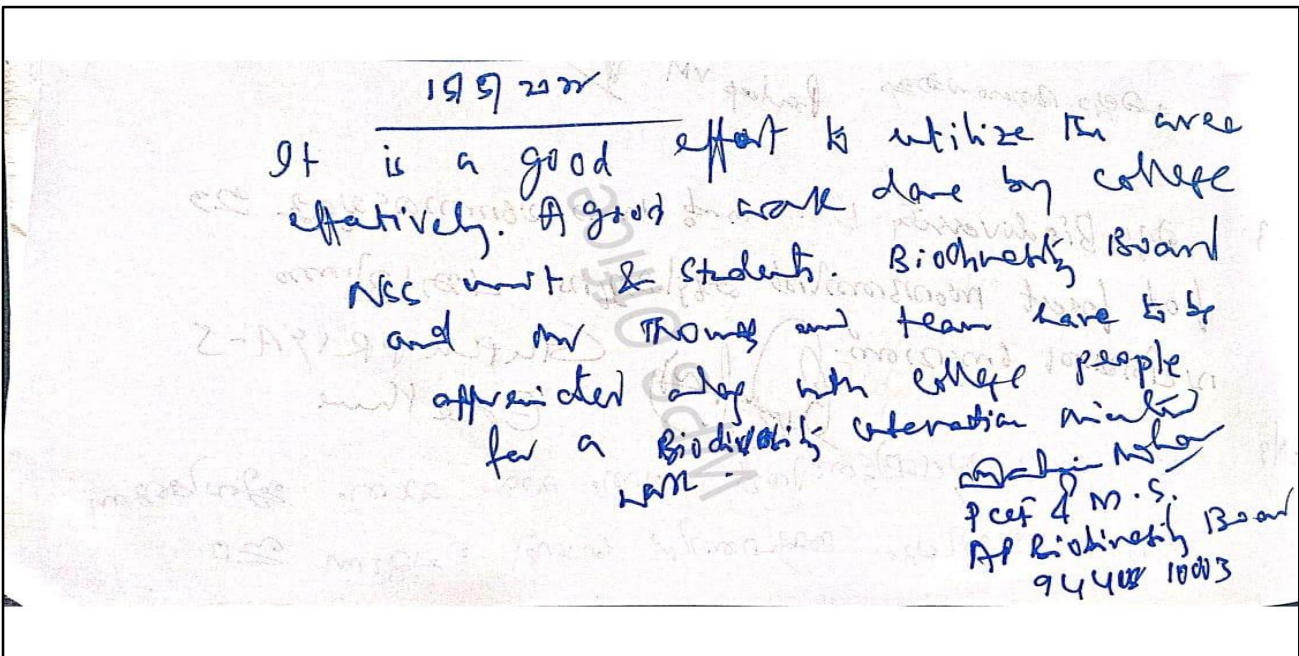 It is a good effort to utilize the area
effectively. A good work done by college
NSS unit & Students. Biodiversity Board
and Mr Thomas and team have to be
appreciated along with college people
for a Biodiversity conservation oriented
work.
PCCF & M.S.
AP Biodiversity Board
10003
WPS Office